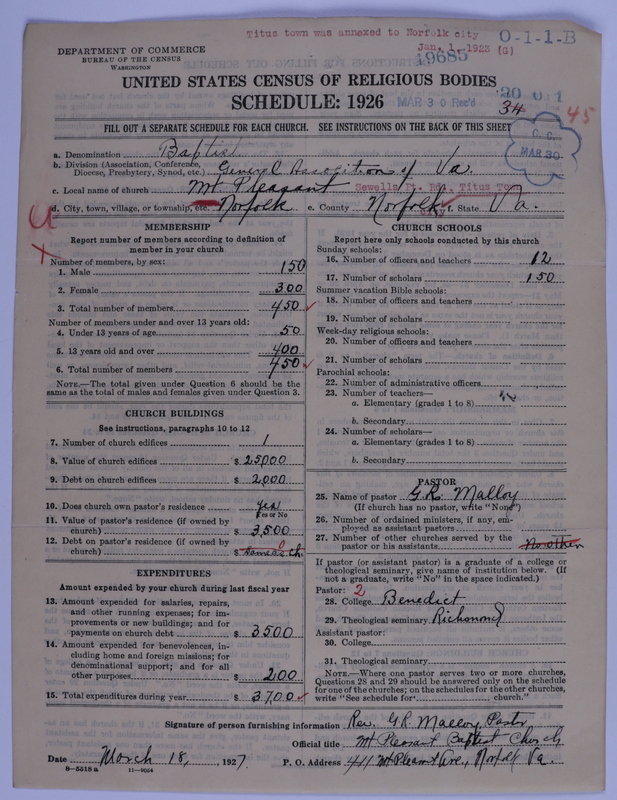 Titus town was annexed to Norfolk city
Jan. 1, 1923 (G)
O-1-1-B
19685
DEPARTMENT OF COMMERCE
BUREAU OF THE CENSUS
WASHINGTON
UNITED STATES CENSUS OF RELIGIOUS BODIES
SCHEDULE: 1926
MAR 30 Rec'd
30 0 1
34
45
FILL OUT A SEPARATE SCHEDULE FOR EACH CHURCH. SEE INSTRUCTIONS ON THE BACK OF THIS SHEET
C. C.
MAR 30
a. Denomination Baptist
b. Division (Association, Conference, Diocese, Presbytery, Synod, etc.) General Association of Va.
c. Local name of church Mt Pleasant Sewells Pt. Rd. Titus
d. City, town, village, or township, etc. Norfolk e. County Norfolk f. State Va.
MEMBERSHIP
Report number of members according to definition of
member in your church
Number of members, by sex:
1. Male 150
2. Female 300
3. Total number of members 450
Number of members under and over 13 years old:
4. Under 13 years of age 50
5. 13 years old and over 400
6. Total number of members 450
NOTE.—The total given under Question 6 should be
same as the total of males and females given under Question 3.
CHURCH BUILDINGS
See instructions, paragraphs 10 to 12
7. Number of church edifices 1
8. Value of church edifices $ 25000
9. Debt on church edifices $ 2,000
10. Does church own pastor's residence yes
Yes or No
11. Value of pastor's residence (if owned by
church) $ 3,500
12. Debt on pastor's residence (if owned by
church) $
EXPENDITURES
Amount expended by your church during last fiscal year
13. Amount expended for salaries, repairs,
and other running expenses; for im-
provements or new buildings; and for
payments on church debt $ 3500
14. Amount expended for benevolences, in-
cluding home and foreign missions; for
denominational support; and for all
other purposes $ 200
15. Total expenditures during year $ 3700
CHURCH SCHOOLS
Report here only schools conducted by this church
Sunday schools:
16. Number of officers and teachers 12
17. Number of scholars 150
Summer vacation Bible schools:
18. Number of officers and teachers
19. Number of scholars
Week-day religious schools:
20. Number of officers and teachers
21. Number of scholars
Parochial schools:
22. Number of administrative officers
23. Number of teachers—
a. Elementary (grades 1 to 8)
b. Secondary
24. Number of scholars—
a. Elementary (grades 1 to 8)
b. Secondary
PASTOR
25. Name of pastor G. R. Malloy
(If church has no pastor, write "None")
26. Number of ordained ministers, if any, em-
ployed as assistant pastors
27. Number of other churches served by the
pastor or his assistants No other
If pastor (or assistant pastor) is a graduate of a college or
theological seminary, give name of institution below. (If
not a graduate, write "No" in the space indicated.)
Pastor: 2
28. College Benedict
29. Theological seminary Richmond
Assistant pastor:
30. College
31. Theological seminary
NOTE.—Where one pastor serves two or more churches,
Questions 28 and 29 should be answered only on the schedule
for one of the churches; on the schedules for the other churches,
write "See schedule for church."
Signature of person furnishing information Rev. G. R. Malloy, Pastor
Official title Mt Pleasant Baptist Church
Date March 18, 1927. P. O. Address 411 Mt Pleasant Ave, Norfolk Va.
8—5318 a 11—9034